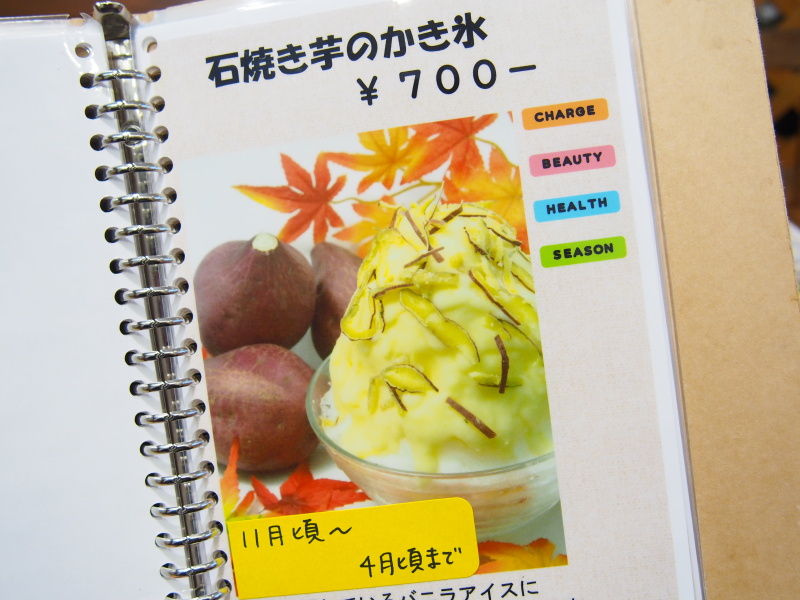 石焼き芋のかき氷
¥700ー
CHARGE
BEAUTY
HEALTH
SEASON
11月頃～
4月頃まで
いるバニラアイスに